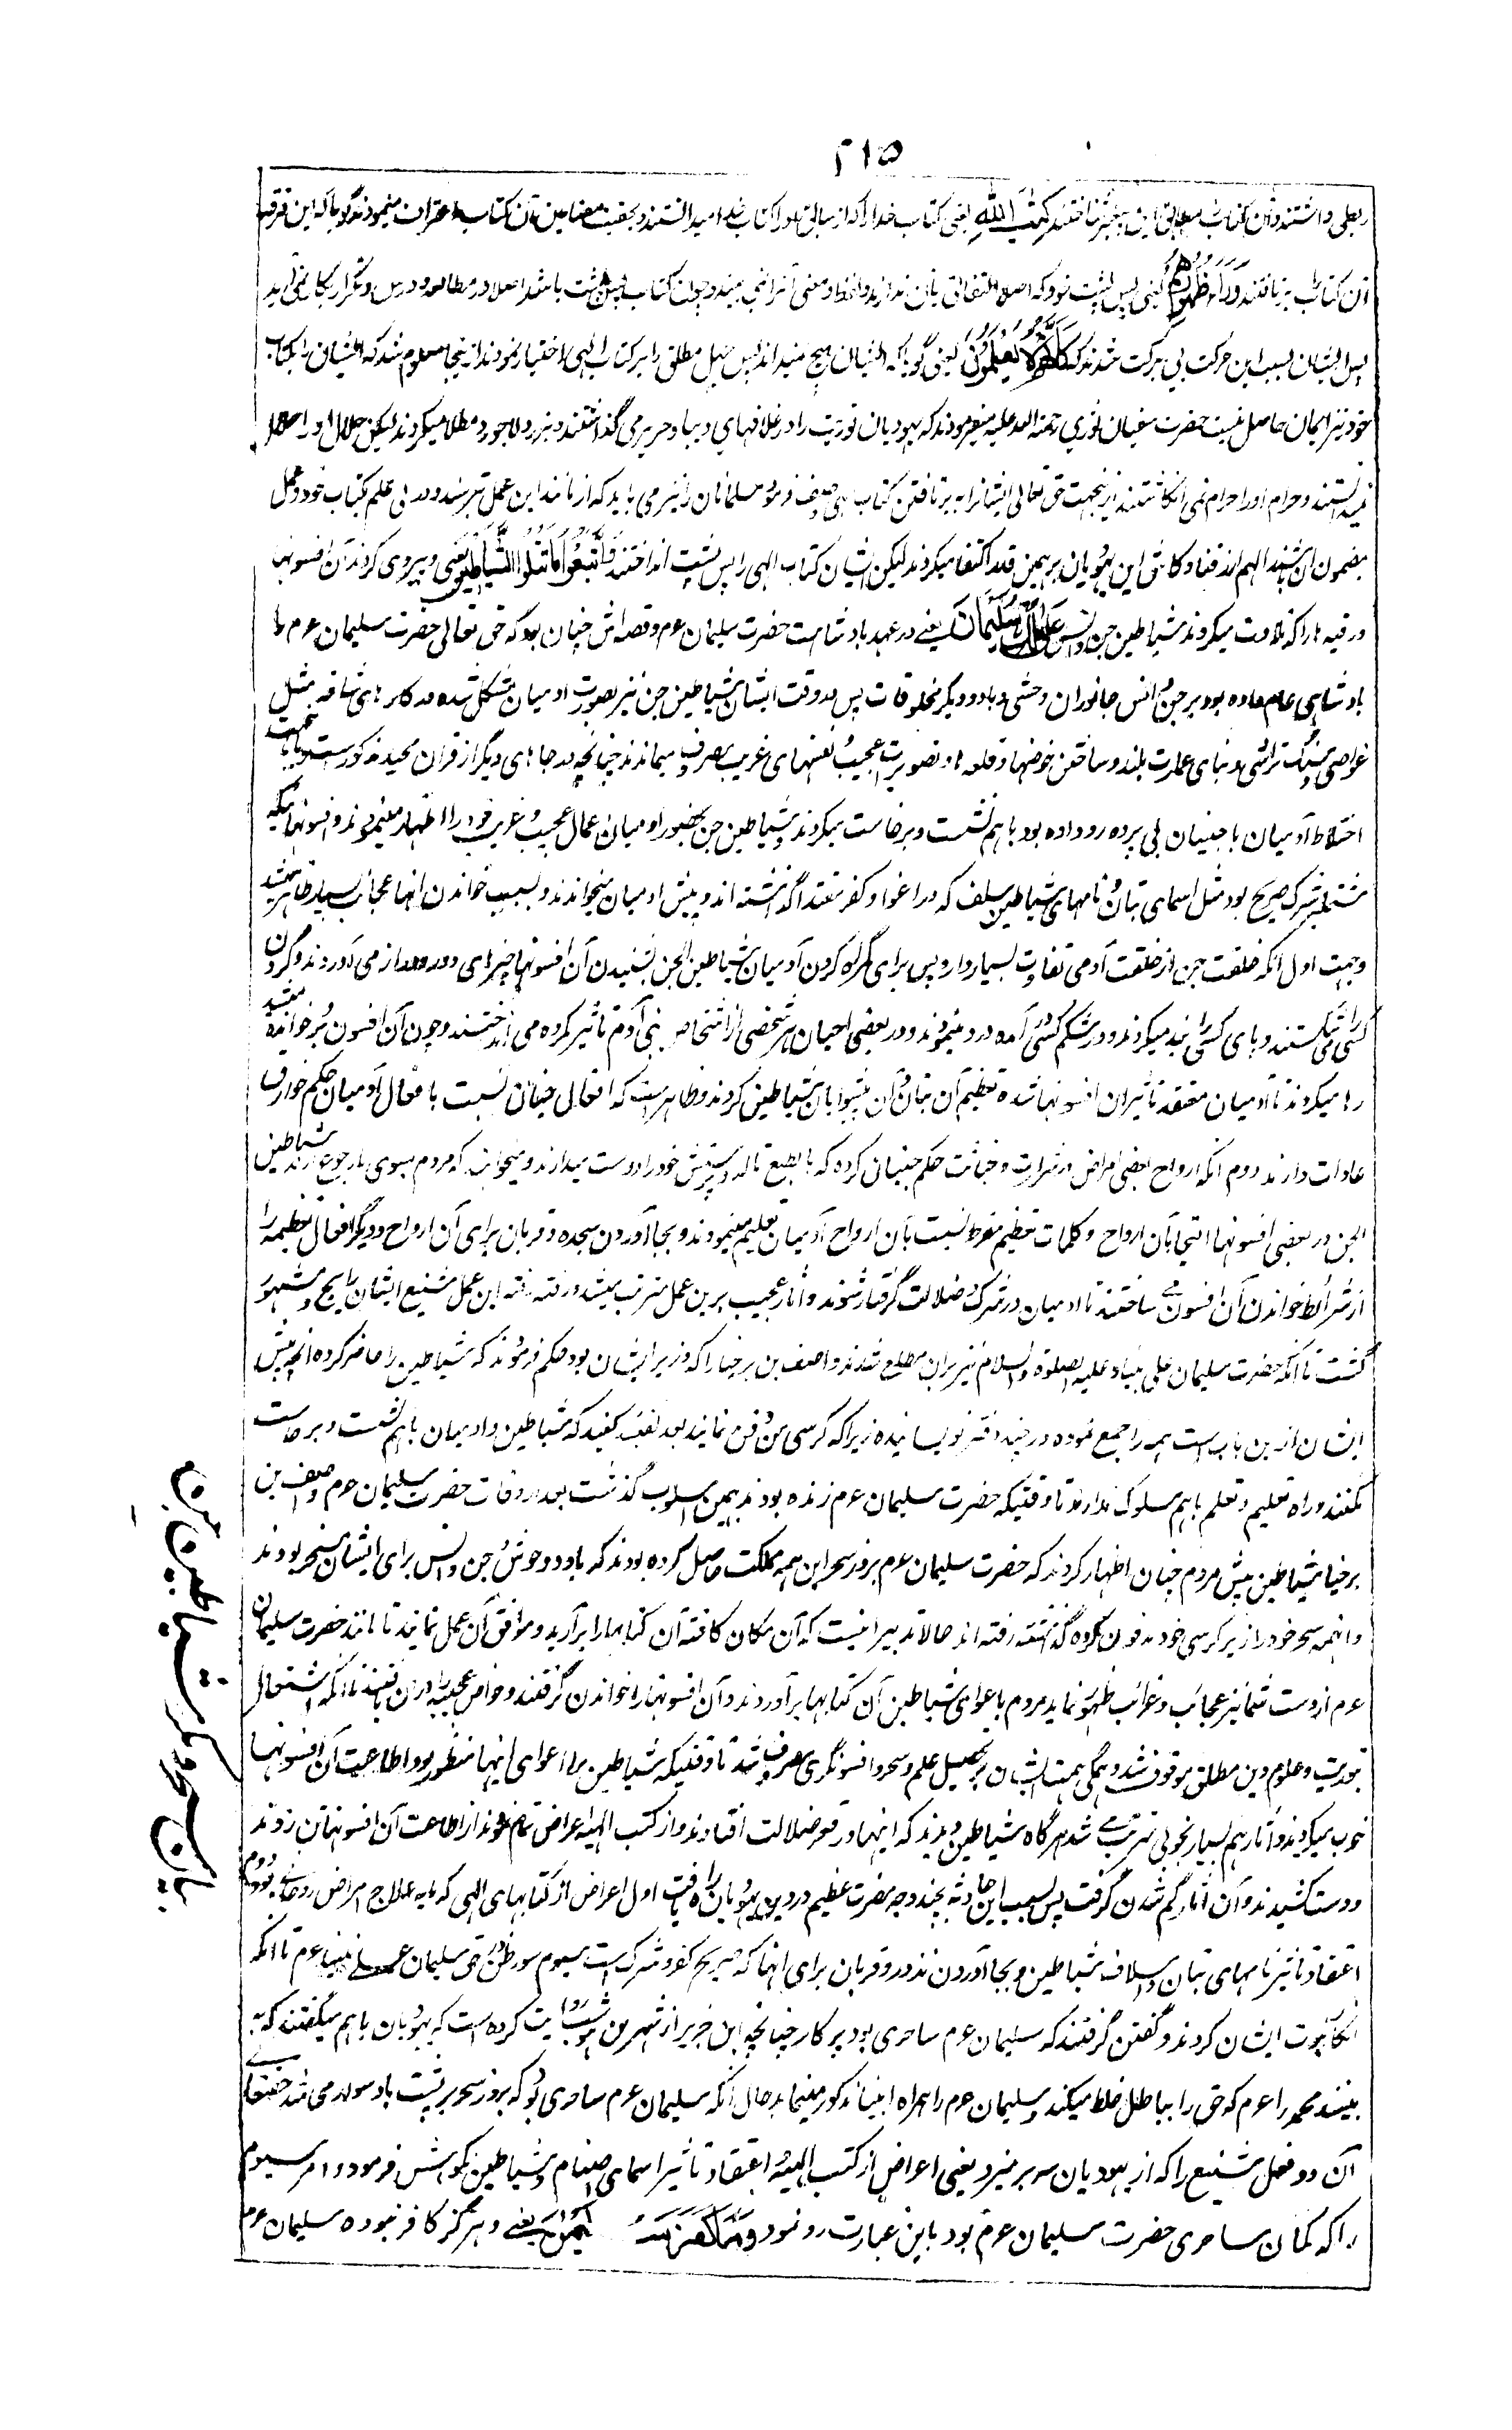 ۲۱۵
ربطی داشتند و آن کتاب مطابق این پیغمبر یافتند كِتٰبَ اللهِ یعنی کتاب خدا را که از سابق او را کتاب خدا میدانستند و بحقیت مضامین آن کتاب اعتراف مینمودند گویا که این فرقه
آن کتاب نیافتند وَرَاءَ ظُهُورِهِمْ یعنی پس پشت خود که اصلا التفاتی بآن ندارند و الفاظ و معنی آنرا نمی بینند و چون کتاب پس پشت باشد اصلا در مطالعه و درس و تکرار بکار نمی آید
پس ایشان بسبب این حرکت بی برکت شدند كَأَنَّهُمْ لَا يَعْلَمُونَ یعنی گویا که ایشان هیچ نمیدانند پس جهل مطلق را بر کتاب الهی اختیار نمودند از ینجا معلوم شد که ایشان را بکتاب
خود نیز ایمان حاصل نیست حضرت سفیان ثوری رحمة الله علیه میفرمودند که یهودیان توریت را در غلافهای دیبا و حریر می گذاشتند و بزر و لاجورد مطلا میکردند لیکن حلال او را حلال
نمیدانستند و حرام او را حرام نمی انگاشتند ازینجهت حق تعالی ایشانرا به نیافتن کتاب الهی وصف فرمود مسلمانان را نیز می باید که از مانند این عمل بترسند و در بی علم کتاب خود و عمل
بمضمون آن باشند اللهم ارزقنا و کاش این یهودیان بر همین قدر اکتفا میکردند لیکن ایشان کتاب الهی را پس پشت انداختند وَاتَّبَعُوا مَا تَتْلُوا الشَّيَاطِينُ یعنی و پیروی کردند آن افسونها
و رقیه ها را که تلاوت میکردند شیاطین جن و انس عَلَى مُلْكِ سُلَيْمَانَ یعنے در عهد بادشاهت حضرت سلیمان عم و قصه اش چنان بود که حق تعالی حضرت سلیمان عم را
بادشاهی عام داده بود بر جن و انس جانوران وحشی و باد و دیگر مخلوقات پس در وقت ایشان شیاطین جن نیز بصورت آدمیان متشکل شده در کارهای شاقه مثل
غواصی و سنگ تراشی و بنای عمارت بلند و ساختن حوضها و قلعه ها و تصویرات عجیب و نقشهای غریب مصروف میماندند چنانچه در جاهای دیگر از قران مجید مذکورست و باینجهت
اختلاط آدمیان با جنیان بی پرده رو داده بود با هم نشست و برخاست میکردند و شیاطین جن بحضور آدمیان اعمال عجیب و غریب خود را اظهار مینمودند و افسونهائیکه
مشتمل بر شرک صریح بود مثل اسمای بتان و نامهای شیاطین سلف که در اغوا و کفر مقتدا گذشته اند و پیش آدمیان میخواندند و بسبب خواندن آنها عجائب بسیار ظاهر میشد
وجهت اول آنکه خلقت جن از خلقت آدمی تفاوت بسیار دارد پس برای گمراه کردن آدمیان شیاطین الجن بشنیدن آن افسونها چیزهای دور دراز می آوردند و گردن
کسی را می شکستند و پای کسی را بند میکردند و در شکم کسی در آمده درد مینمودند و در بعضی احیان بر شخصی از اشخاص بنی آدم تاثیر کرده می انداختند و چون آن افسون بر خوانده میشد
رها میکردند تا آدمیان معتقد تاثیر آن افسونها شده تعظیم آن بتان و آن پیشوایان شیاطین کردند و ظاهرست که افعال جنیان نسبت بافعال آدمیان حکم خوارق
عادات دارند دوم آنکه ارواح بعضی امراض و شرارت و خباثت حکم جنیان کرده که بالطبع تاله و پرستش خود را دوست میدارند و میخواهند که مردم بسوی ما رجوع آرند شیاطین
الجن در بعضی افسونها التجا بآن ارواح و کلمات تعظیم مفرط نسبت بآن ارواح آدمیان تعلیم مینمودند و بجا آوردن سجده و قربان برای آن ارواح و دیگر افعال تعظیمه را
از شرائط خواندن آن افسون مے ساختند تا آدمیان در شرک و ضلالت گرفتار شوند و آثار عجیب برین عمل مترتب میشد و رفته رفته این عمل شنیع ایشان رایج و مشهور
گشت تا آنکه حضرت سلیمان علی نبینا و علیه الصلوة والسلام نیز بران مطلع شدند و اصف بن برخیا را که وزیر ایشان بود حکم فرمودند که شیاطین را حاضر کرده آنچه پیش
ایشان ازین باب است همه را جمع نموده در چند دفتر نویسانیده زیرا که کرسی من دفن نمایند بعد تقید کنید که شیاطین و آدمیان باهم نشست و برخاست
نکنند و راه تعلیم و تعلم باهم مسلوک ندارند تا وقتیکه حضرت سلیمان عم زنده بودند بهمین اسلوب گذشت بعد وفات حضرت سلیمان عم و آصف بن
برخیا شیاطین پیش مردم چنان اظهار کردند که حضرت سلیمان عم بزور سحر این همه مملکت حاصل کرده بودند که باد و وحوش و جن و انس برای ایشان مسخر بودند
و اینهمه سحر خود را زیر کرسی خود مدفون کرده گذاشته رفته اند حالا تدبیر اینست که آن مکان کافته آن کتابها را برآرید و موافق آن عمل نمایند تا مانند حضرت سلیمان
عم از دست شما نیز عجائب و غرائب ظهور نماید مردم باغوای شیاطین آن کتابها برآوردند و آن افسونها را خواندن گرفتند و خواص عجیبه را در آن یافتند تا آنکه اشتغال
بتوریت و علوم دین مطلق موقوف شد و همگی همت ایشان بر تحصیل علم سحر و افسونگری مصروف شد تا وقتیکه شیاطین را اغوای اینها منظور بود اطاعت آن افسونها
خوب میکردند و آثار هم بسیار بخوبی مترتب مے شد هرگاه شیاطین دیدند که اینها در قعر ضلالت افتادند و از کتب الهیه اعراض تمام نمودند از اطاعت آن افسونها تن زدند
و دست کشیدند و آن آثار گم شدن گرفت پس بسبب این حادثه بچند وجه مضرت عظیم در دین یهودیان راه یافت اول اعراض از کتابهای الهی که مایه علاج امراض روحانے بود دوم
اعتقاد تاثیر نامهای بتان و اسلاف شیاطین و بجا آوردن نذور و قربان برای اینها که صریح کفر و شرک است سیوم سوء ظن در حق سلیمان علی نبینا عم تا آنکه
انکار نبوت ایشان کردند و گفتن گرفتند که سلیمان عم ساحری بود پرکار چنانچه ابن جریر از شهر بن حوشب روایت کرده است که یهودیان باهم میگفتند که به
بینند محمد را عم که حق را بباطل خلط میکند و سلیمان عم را همراه انبیا مذکور مینماید حال آنکه سلیمان عم ساحری بود که بزور سحر بر پشت باد سوار می شد حق تعالی
آن دو فعل شنیع را که از یهودیان سر بر میزد یعنی اعراض از کتب الهیه و اعتقاد تاثیر اسمای اصنام و شیاطین نکوهش فرمود و امر سیوم
را که گمان ساحری حضرت سلیمان عم بود باین عبارت رد نمود وَمَا كَفَرَ سُلَيْمَانُ یعنے و هرگز کافر نبوده سلیمان عم
بیان سحر و مکر شیاطین جن